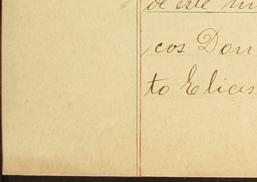 de este m
cos Don
to Elias